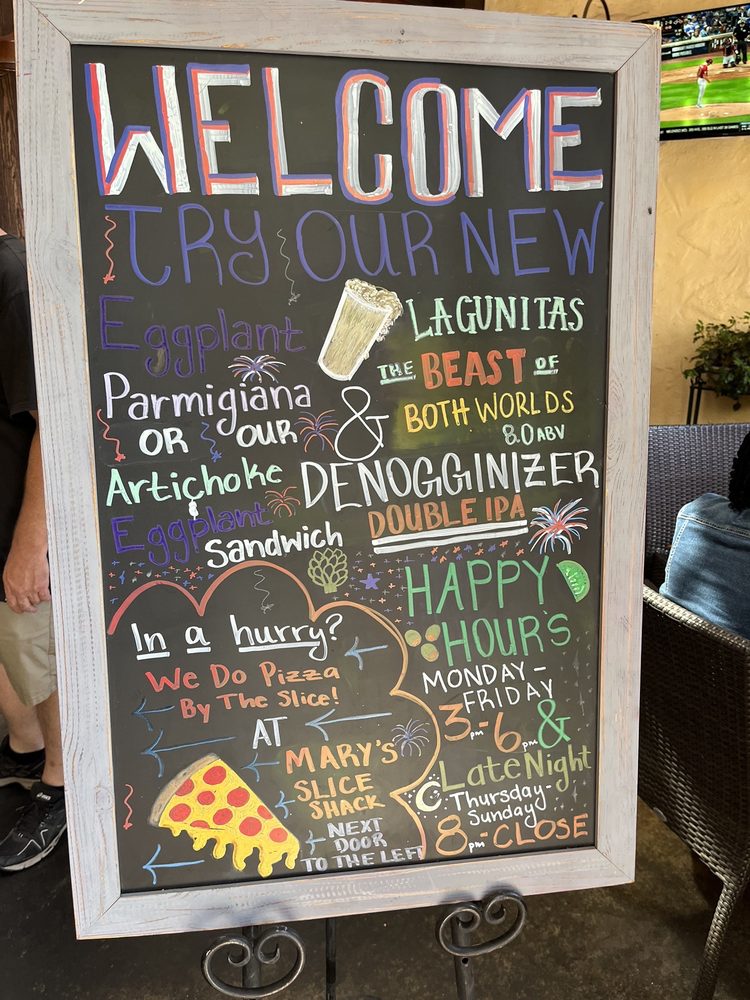 WELCOME
TRY OUR NEW
Eggplant
Parmigiana
OR OUR
Artichoke
&
Eggplant
Sandwich
&
LAGUNITAS
THE BEAST OF
BOTH WORLDS
8.0 ABV
DENOGGINIZER
DOUBLE IPA
In a hurry?
We Do Pizza
By The Slice!
AT
MARY'S
SLICE
SHACK
NEXT
DOOR
TO THE LEFT
HAPPY
HOURS
MONDAY-
FRIDAY
3pm-6pm &
Late Night
Thursday-
Sunday
8pm-CLOSE